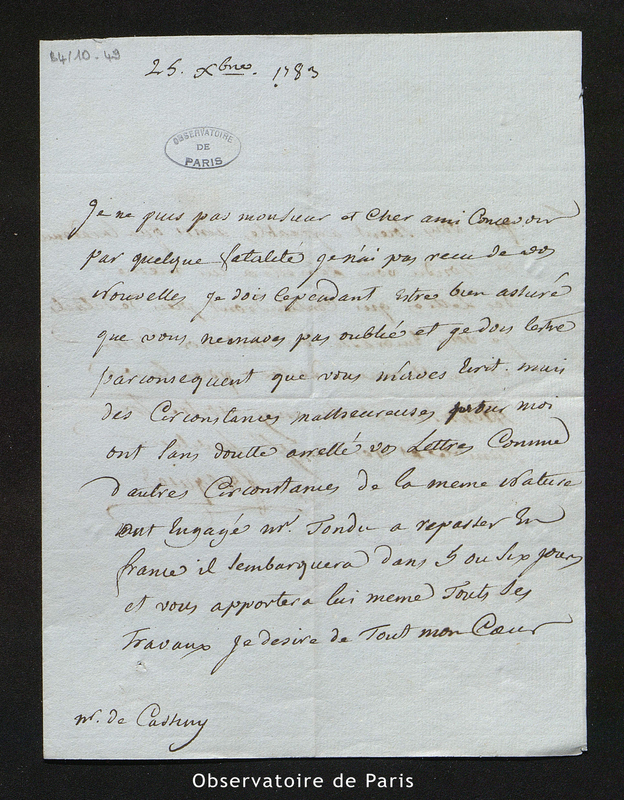 B4/10-49
25. Xbre. 1783
OBSERVATOIRE
DE
PARIS
je ne puis pas monsieur et Cher ami Concevoir
par quelque fatalité je n'ai pas recu de vos
Nouvelles je dois Cependant estre bien assuré
que vous ne mavés pas oublié et je dois lestre
par consequent que vous m'aves Ecrit. mais
des Circonstances malheureuses pour moi
ont sans doutte arretté vos Lettres Comme
d'autres Circonstances de la meme Nature
ont Engagé mr. Tondu a repasser En
france il sembarquera dans 5 ou six jours
et vous apportera lui meme Touts ses
Travaux je desire de Tout mon Cœur
mr. de Cassiny
Observatoire de Paris